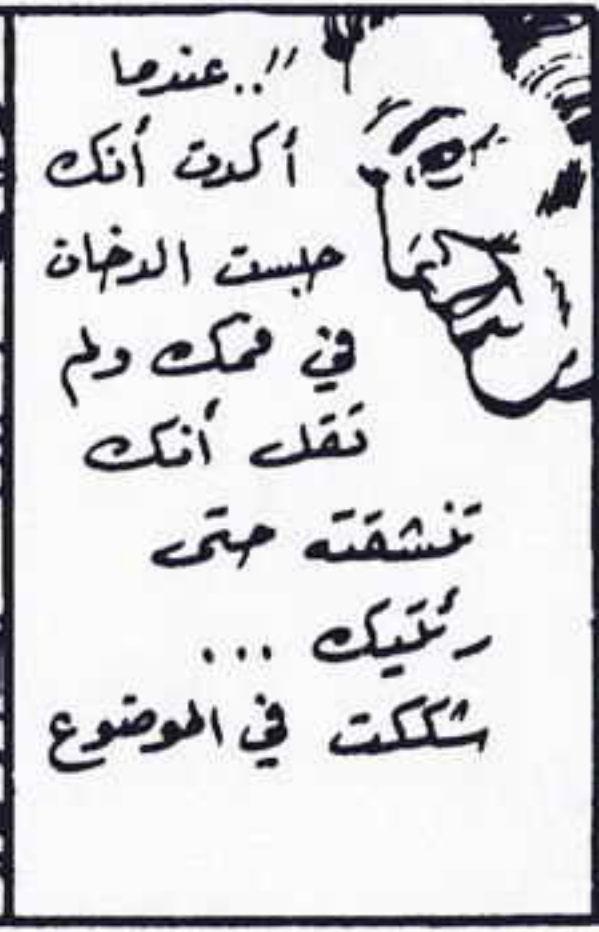 "..عندما
أكدت أنك
حبست الدخان
في فمك ولم
تقل أنك
تنشقته حتى
رئتيك ...
شككت في الموضوع